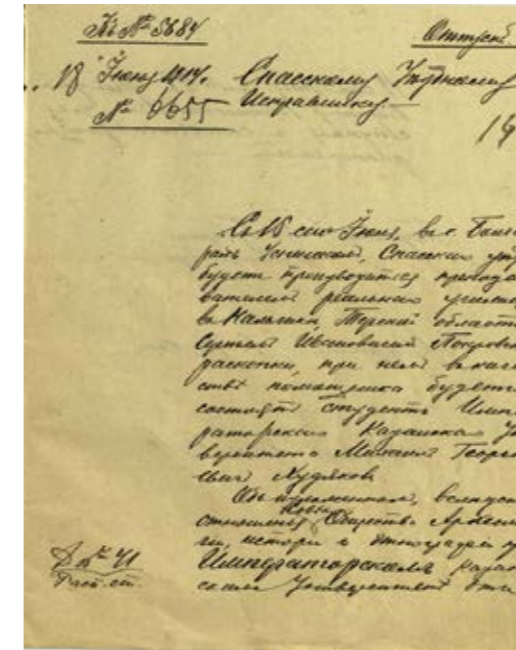 Къ № 5684
Отпускъ.
18 Іюня 1914.
№ 6655
Спасскому Уѣздному
Исправнику
Съ 15 сего Іюня, въ с.
Успенскомъ, Спасскаго
будетъ производиться
вателемъ реальнаго
въ Нальчикѣ, Терской области
Сергѣемъ Ивановичемъ Покровск
раскопки, при немъ въ каче
ствѣ помощника будетъ
состоять студентъ Импе
раторскаго Казанскаго Ун
верситета Михаилъ Георг
евичъ Худяковъ
Объ изложенномъ, вслѣдст
отношенія Общества Археоло
гіи, исторіи и этнографіи п
Императорскомъ Казан
скомъ Университетѣ